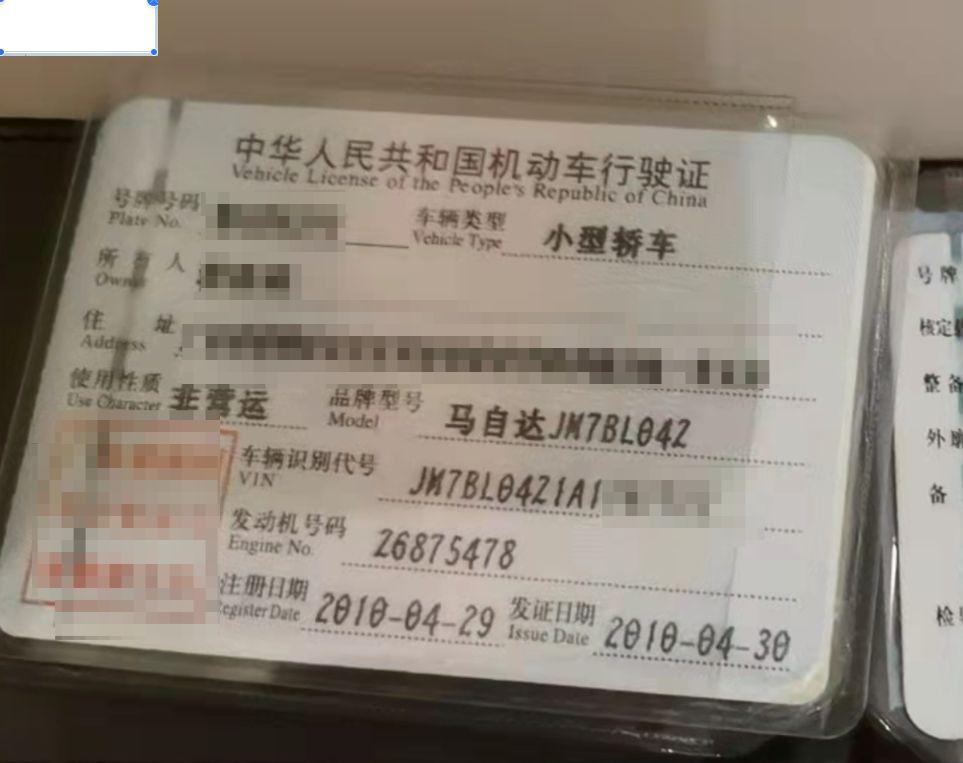 中华人民共和国机动车行驶证
Vehicle License of the People's Republic of China
号牌号码 车辆类型 小型轿车
Plate No. Vehicle Type
所有人
Owner
住址
Address
使用性质 非营运 品牌型号 马自达JM7BL042
Use Character Model
车辆识别代号 JM7BL04Z1A1
VIN
发动机号码 26875478
Engine No.
注册日期 2010-04-29 发证日期 2010-04-30
Register Date Issue Date
号牌
核定
整备
外廓
备
检验